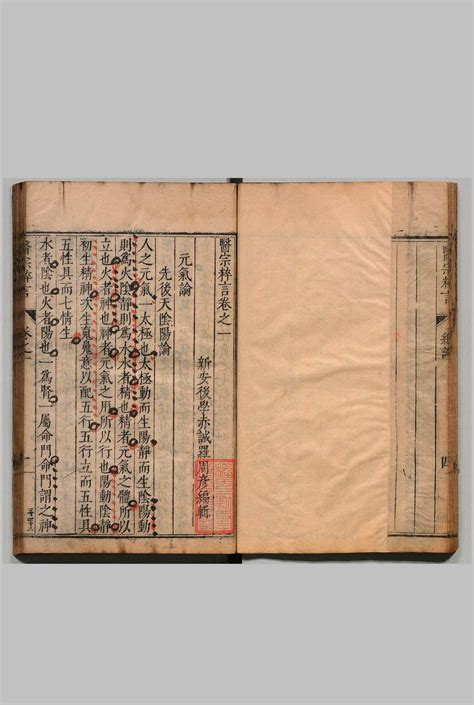 醫宗粹言
四
醫宗粹言卷之一
新安後學赤誠羅周彥編輯
元氣論
先後天陰陽論
人之元氣一太極也太極動而生陽靜而生陰陽動
則爲火陰靜則爲水水者精也精者元氣之體所以
立也火者神也神者元氣之用所以行也動陰靜
初生精神次生魂魄意以配五行五行立而五性具
五性具而七情生
水者陰也火者陽也一爲腎一屬命門命門謂之神
醫宗粹言 卷之一